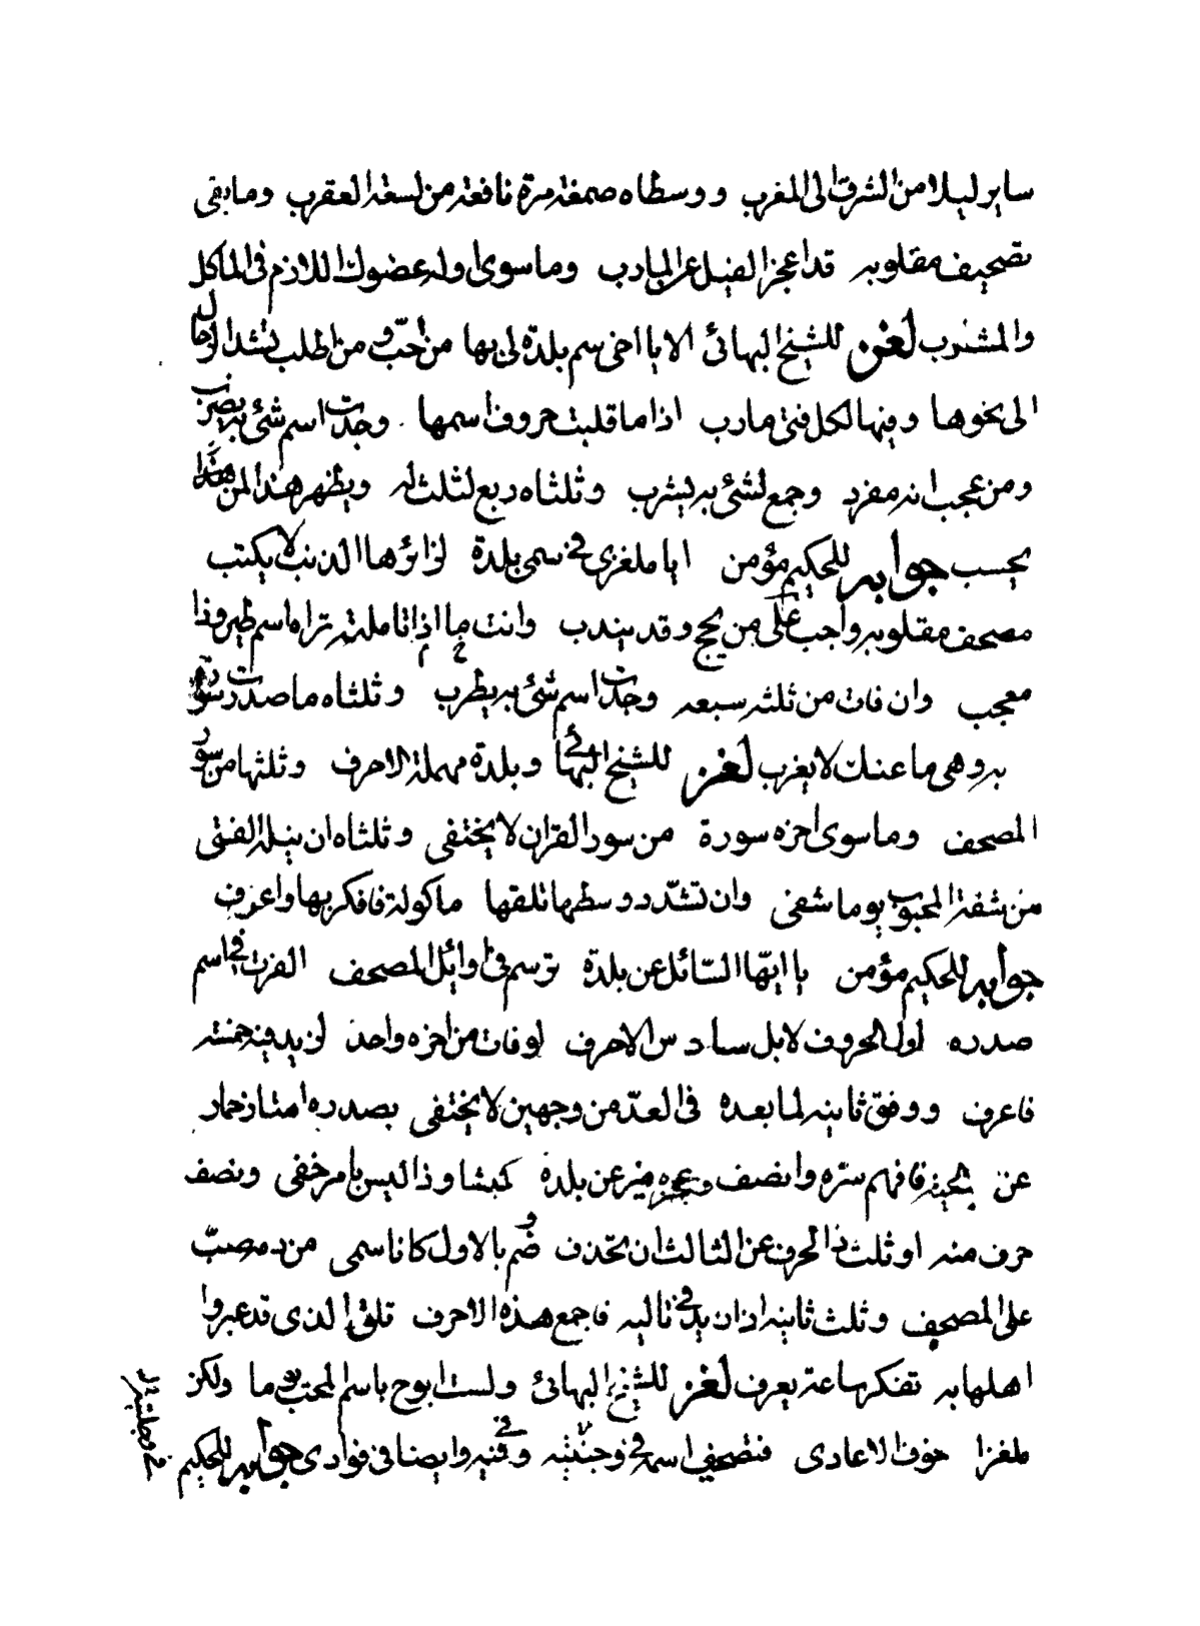 ساير ليلا من الشرق الى المغرب ووسطاه صمغة مرة نافعة من لسعة العقرب وما بقى
تصحيف مقلوبه قد اعجز الفيل عن المآرب وما سوى اوله عضوك اللازم فى الماكل
والمشرب لغز للشيخ البهائى الا يا اخى سم بلدة لى بها من احبّ و من اطلب تشد الرحال
الى نحوها وفيها لكل فتى مارب اذا ما قلبت حروف اسمها وجدت اسم شئ به يضرب
ومن عجب انه مفرد وجمع لشئ به يشرب وثلثاه ربع لثلث له ويظهر هذا لمن
يحسب جوابه للحكيم مؤمن ايا ملغزى فى سمى بلدة لزائرها الذنب لا يكتب
مصحف مقلوبه واجب على من يحج وقد يندب وانت اذا ما تاملته تراه اسم طير وذا
معجب وان فات من ثلثه سبعه وجدت اسم شئ به يطرب وثلثاه ما صدرت سورة
به وهى ما عنك لا يغرب لغز للشيخ البهائى وبلدة مهملة الاحرف وثلثها من سور
المصحف وما سوى اخره سورة من سور القران لا يختفى وثلثاه ان ينله الفتى
من شفة المحبوب يوما شفى وان تشدّد وسطها تلقها ماكولة فافكر بها واعرف
جوابه للحكيم مؤمن يا ايّها السّائل عن بلدة ترسم فى اوائل المصحف الفرق فى اسم
صدره اول الحروف لا بل سادس الاحرف لو فات من اخره واحد لزيد فيه خمسه
فاعرف ووفق ثانيه لما بعده فى العدّ من وجهين لا يختفى بصدره امتاز حمار
عن فافهم سره وانصف وعجزه ميز عن بلدة كمبشا وذا ليس بامر خفى ونصف
حرف منه او ثلث ذا الحرف عن الثالث ان تحذف وضم بالاول كانا سمى من دم صبّ
على المصحف وثلث ثانيه اذا زيد فى تاليه فاجمع هذه الاحرف تلق الذى قد عبروا
اهلها به تفكر ساعة يعرف لغز للشيخ البهائى ولست ابوح باسم المحب يوما ولكن
ملغزا خوف الاعادى فتصحيف اسمه فى وجنتيه وفى فيه وايضا فى فوادى جوابه للحكيم